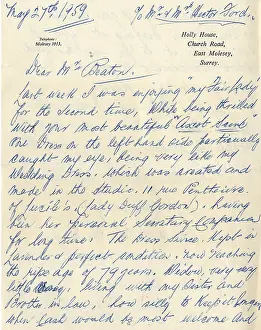 May 27th, 1959.
c/o Mr & Mrs Hector Ford.
Telephone
Molesey 3913.
Holly House,
Church Road,
East Molesey,
Surrey.
Dear Mr Beaton.
Last week I was enjoying "My Fair Lady"
for the second time, While being thrilled
with your most beautiful "Ascot Scene"
One Dress on the left hand side particularly
caught my eye, being very like my
Wedding Dress, which was created and
made in the Studio, 11 rue Penthievre
of Lucile's (Lady Duff Gordon), having
been her Personal Secretary Companion
for long time. The Dress since Kept in
Lavender & perfect condition, now reaching
the ripe age of 79 years, Widow, very very
little money, living with my Sister and
Brother in law, how silly to Keep it longer
when cash would be most welcome and